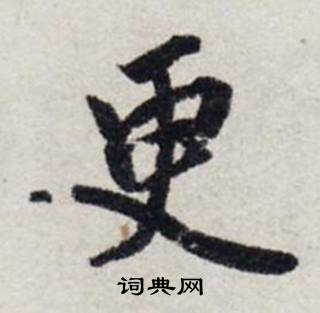 更
词典网